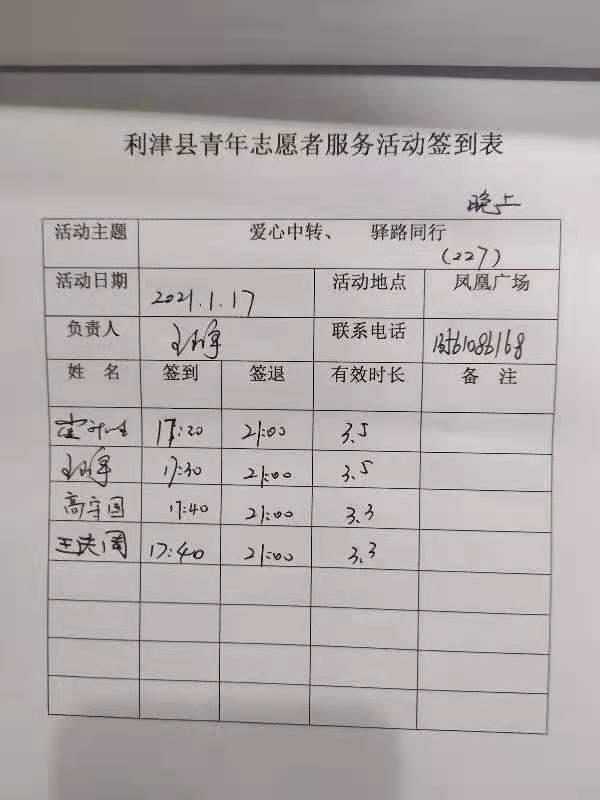 利津县青年志愿者服务活动签到表
晚上
活动主题 爱心中转、 驿路同行
(227)
活动日期 2021.1.17 活动地点 凤凰广场
负责人 联系电话
姓名 签到 签退 有效时长 备注
17:30 21:00 3.5
17:30 21:00 3.5
高守国 17:40 21:00 3.3
17:40 21:00 3.3